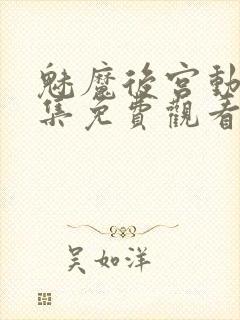 魅魔後宮動
集免費觀看
吴如洋